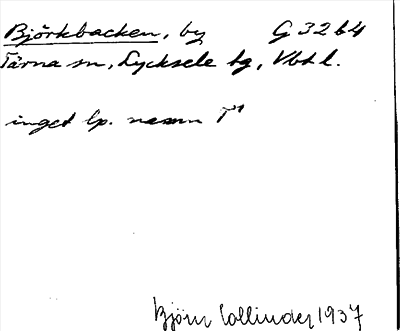 Björkbacken, by G 32 b4
Tärna sn, Lycksele lg, Vbt l.
inget lp. namn T¹
Björn Collinder 1937